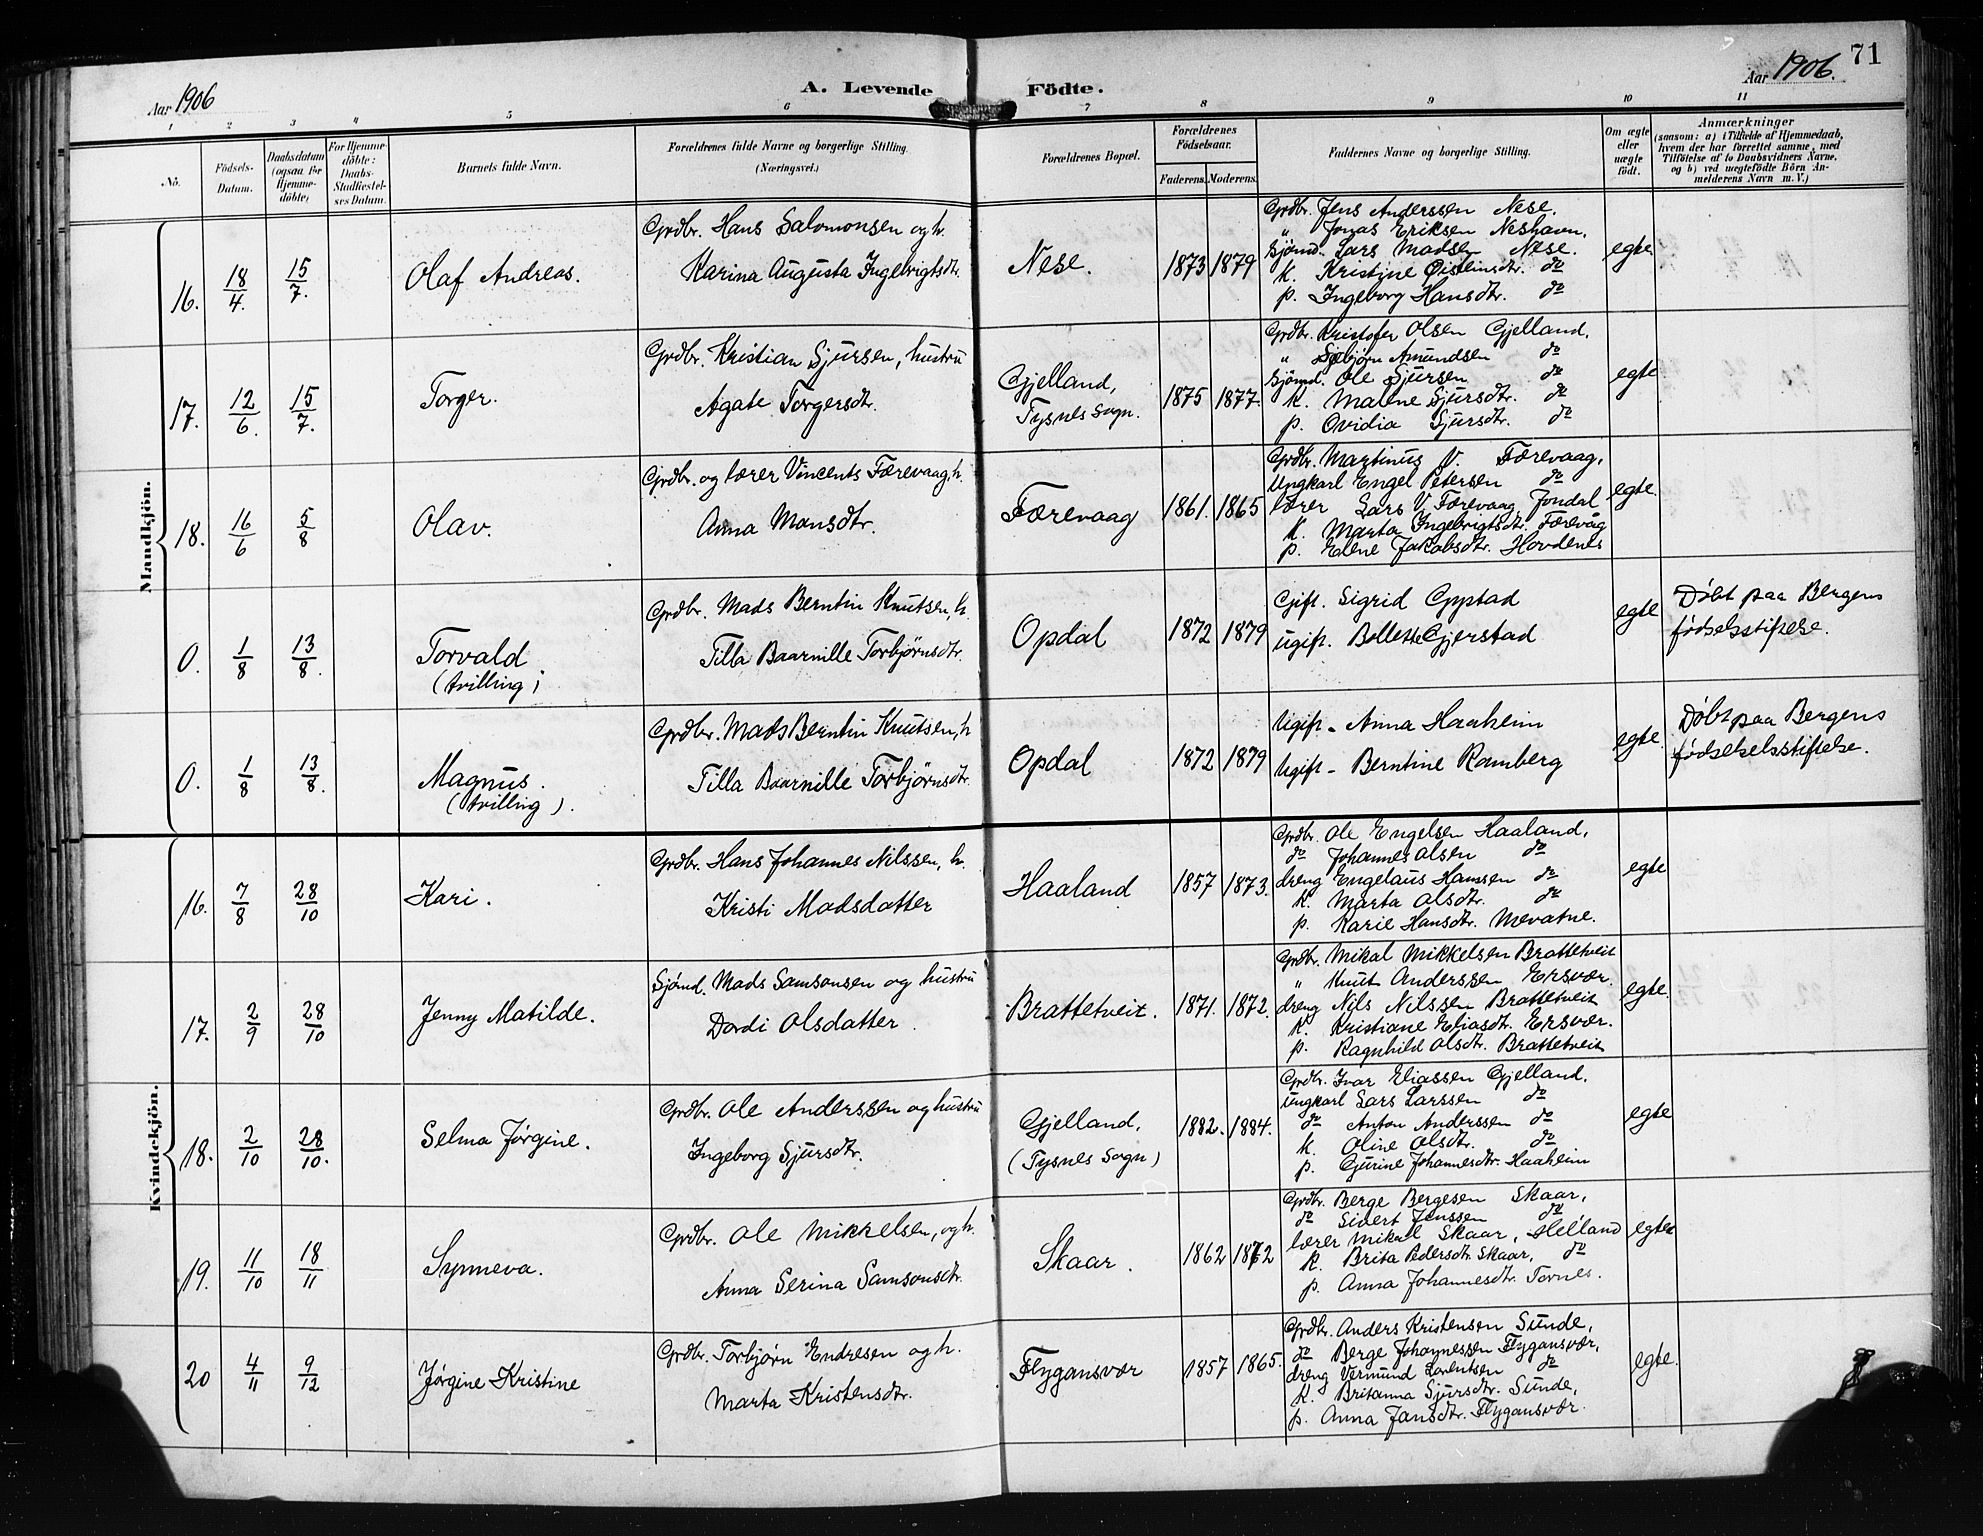 71
Aar 1906
A. Levende
Födte.
Aar 1906.
1 2 3 4 5 6 7 8 9 10 11
No.
Födsels-
Datum.
Daabsdatum
(ogsaa for
Hjemme-
döbte)
For Hjemme-
döbte:
Daabs-
Stadfæstel-
ses Datum.
Barnets fulde Navn.
Forældrenes fulde Navne og borgerlige Stilling.
(Næringsvei.)
Forældrenes Bopæl.
Forældrenes
Födselsaar.
Faderens. Moderens.
Faddernes Navne og borgerlige Stilling.
Om ægte
eller
uægte
födt.
Anmærkninger
(saasom: a) i Tilfælde af Hjemmedaab,
hvem der har forrettet samme, med
Tilföielse af to Daabsvidners Navne,
og b) ved uægtefödte Börn An-
melderens Navn m. V.)
Mandkjön.
16. 18/4. 15/7. Olaf Andreas.
Grdbr. Hans Salomonsen og h.
Karina Augusta Ingebrigtsdtr.
Nese. 1873 1879
Grdbr. Jens Anderssen Nese.
" Jonas Eriksen Neshaven.
Sjömd. Lars Madsen Nese.
K. Kristine Øisteinsdtr. do
p. Ingeborg Hansdtr. do
egte
17. 12/6. 15/7. Torger.
Grdbr. Kristian Sjursen, hustru
Agate Torgersdtr.
Gjelland,
Tysnes Sogn.
1875 1877.
Grdbr. Kristofer Olsen Gjelland.
" Sæbjørn Amundsen do
Sjömd. Ole Sjursen do
K. Malene Sjursdtr. do
p. Ovidia Sjursdtr. do
egte
18. 16/6 5/8 Olav.
Grdbr. og lærer Vincents Færevaag, h.
Anna Monsdtr.
Færevaag 1861. 1865
Grdbr. Martinus V. Færevaag,
Ungkarl Engel Petersen do
lærer Lars V. Færevaag, Jondal
K. Marta Ingebrigtsdtr. Færevåg
p. Elene Jakobsdtr. Hovdenes
egte.
0. 1/8 13/8. Torvald
(tvilling)
Grdbr. Mads Berntin Knutsen, h.
Tilla Baarnille Torbjørnsdtr.
Opdal 1872 1879
Gift. Sigrid Opstad
ugift. Bollette Gjerstad
egte
Døbt paa Bergens
fødselsstiftelse.
0. 1/8 13/8. Magnus.
(tvilling).
Grdbr. Mads Berntin Knutsen, h
Tilla Baarnille Torbjørnsdtr.
Opdal 1872 1879
Ugift - Anna Haaheim
Ugift - Berntine Ramberg
egte.
Døbt paa Bergens
fødselselsstiftelse.
Kvindekjön.
16. 7/8 28/10 Kari.
Grdbr. Hans Johannes Nilssen, h.
Kristi Madsdatter
Haaland 1857 1873.
Grdbr. Ole Engelsen Haaland,
do Johannes Olsen do
dreng Engelaus Hanssen do
K. Marta Olsdtr. do
p. Karie Hansdtr. Mevatne.
egte
17. 2/9 28/10 Jenny Matilde.
Sjömd. Mads Samsonsen og hustru
Dordi Olsdatter.
Brattetveit. 1871. 1872.
Grdbr. Mikal Mikkelsen Brattetveit
" Knut Anderssen Ersvær.
dreng Nils Nilssen Brattetveit
K. Kristiane Eliasdtr. Ersvær.
p. Ragnhild Olsdtr. Brattetveit
egte.
18. 2/10 28/10. Selma Jørgine.
Grdbr. Ole Anderssen og hustru
Ingeborg Sjursdtr.
Gjelland,
(Tysnes Sogn)
1882. 1884.
Grdbr. Ivar Eliassen Gjelland.
ungkarl Lars Larssen do
do Anton Anderssen do
K. Oline Olsdtr. do
p. Gurine Johannesdtr. Haaheim
egte
19. 11/10 18/11 Synneva.
Grdbr. Ole Mikkelsen, og h.
Anna Serina Samsonsdtr.
Skaar. 1862 1872
Grdbr. Berge Bergesen Skaar,
do Sivert Jenssen do
lærer Mikal Skaar, Helland
K. Brita Pedersdtr. Skaar, do
p. Anna Johannesdtr. Tornes.
egte
20 4/11 9/12 Jørgine Kristine
Grdbr. Torbjørn Endresen og h.
Marta Kristensdtr.
Flygansvær 1857 1865.
Grdbr. Anders Kristensen Sunde,
do Berge Johannessen Flygansvær,
dreng Vermund Lorentsen do
K. Britanna Sjursdtr. Sunde,
p. Anna Jansdtr. Flygansvær.
egte.